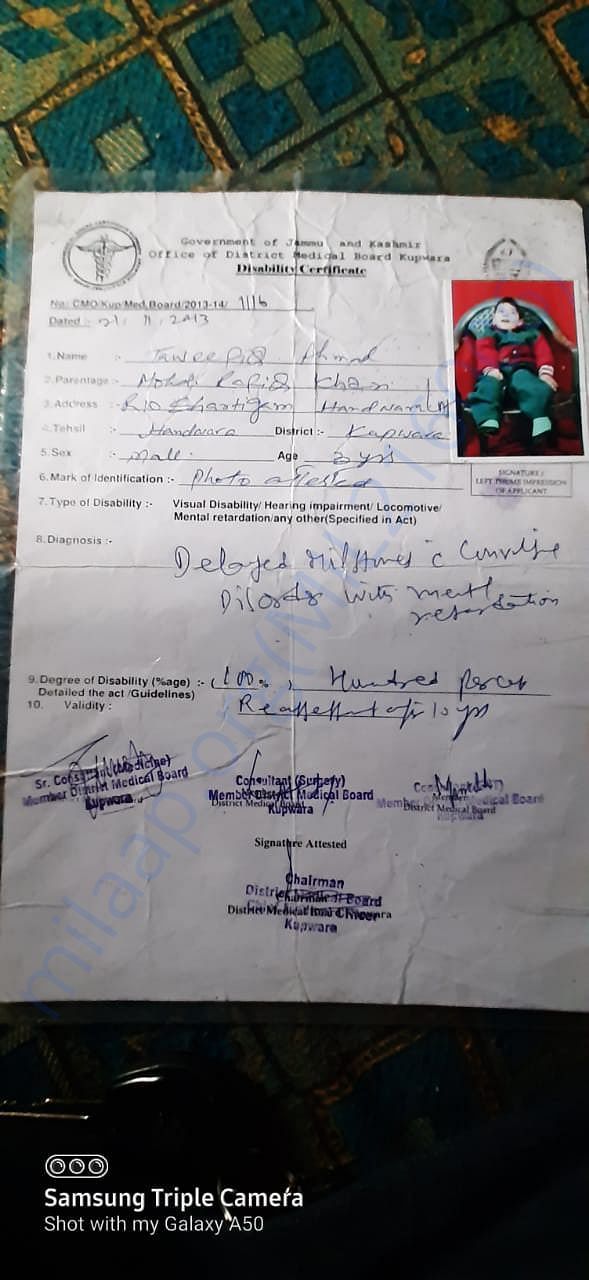 Government of Jammu and Kashmir
Office of District Medical Board Kupwara
Disability Certificate
No: CMO/Kup/Med.Board/2013-14/ 1116
Dated :- 21. 11. 2013
1.Name :- Ahmad
2.Parentage :- Mohd Rafiq Khan
3.Address :- R/o Handwara
4.Tehsil :- Handwara District :- Kupwara
5.Sex :- Male. Age 3 yrs
6.Mark of Identification :- Photo attested
SIGNATURE /
LEFT THUMB IMPRESSION
OF APPLICANT
7.Type of Disability :- Visual Disability/ Hearing impairment/ Locomotive/
Mental retardation/any other(Specified in Act)
8.Diagnosis :-
Delayed Milstones c Convulsive
Disorder with mental
retardation
9.Degree of Disability (%age) :- (100 % , Hundred percent
Detailed the act /Guidelines)
10. Validity : Reassessment after 10 yrs
Sr. Consultant (Medicine)
Member District Medical Board
Kupwara
Consultant (Surgery)
Member District Medical Board
District Medical Board
Kupwara
Member
Member Medical Board
District Medical Board
Kupwara
Signature Attested
Chairman
District Medical Board
Chairman
District Medical Board Kupwara
Kupwara
milaap.org
Samsung Triple Camera
Shot with my Galaxy A50